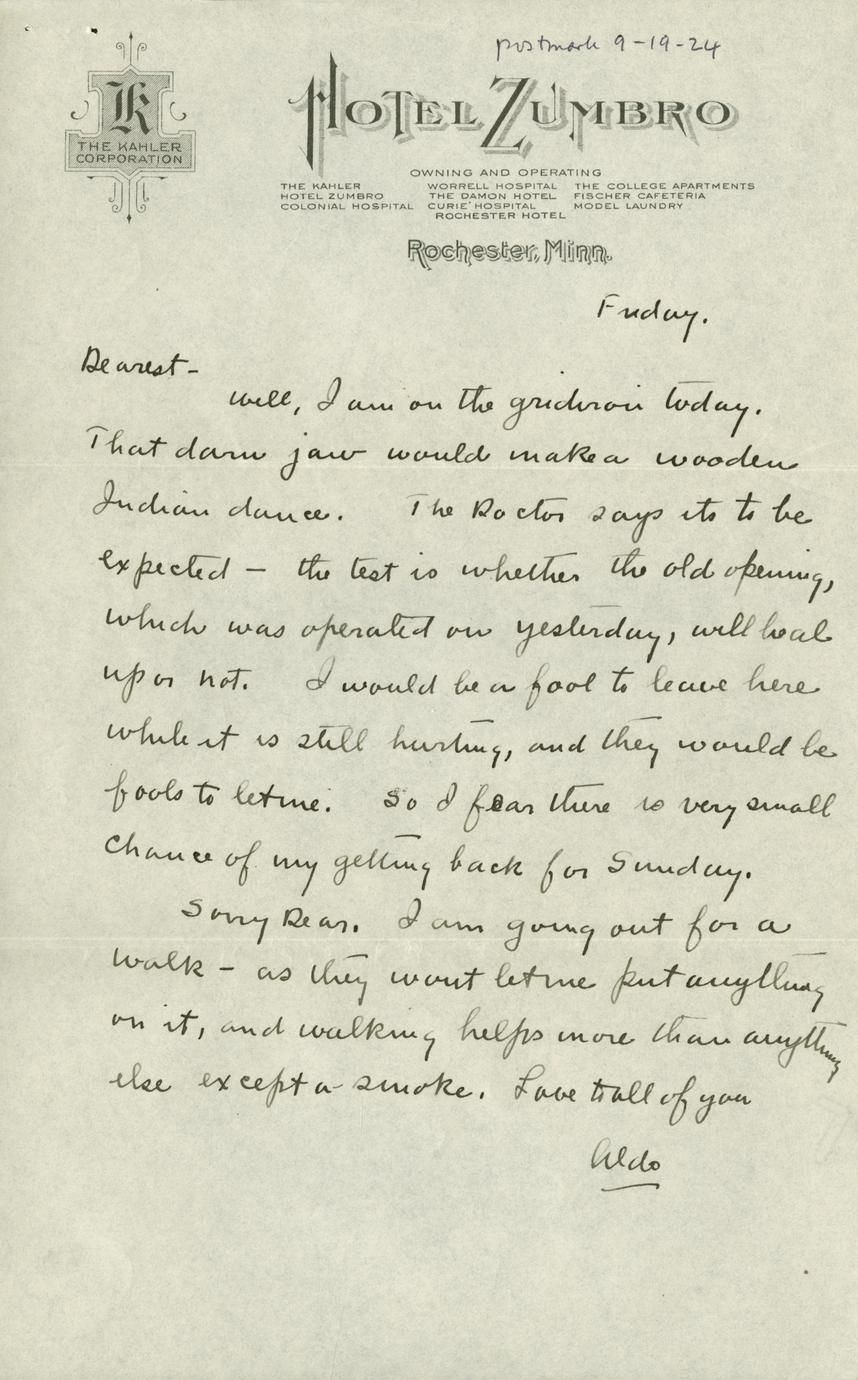 postmark 9-19-24
K
THE KAHLER
CORPORATION
HOTEL ZUMBRO
OWNING AND OPERATING
THE KAHLER WORRELL HOSPITAL THE COLLEGE APARTMENTS
HOTEL ZUMBRO THE DAMON HOTEL FISCHER CAFETERIA
COLONIAL HOSPITAL CURIE HOSPITAL MODEL LAUNDRY
ROCHESTER HOTEL
Rochester, Minn.
Friday.
Dearest -
Well, I am on the gridiron today.
That darn jaw would make a wooden
Indian dance. The Doctor says its to be
expected - the test is whether the old opening,
which was operated on yesterday, will heal
up or not. I would be a fool to leave here
while it is still hurting, and they would be
fools to let me. So I fear there is very small
chance of my getting back for Sunday.
Sorry Dear. I am going out for a
walk - as they wont let me put anything
on it, and walking helps more than anything
else except a smoke. Love to all of you
Aldo